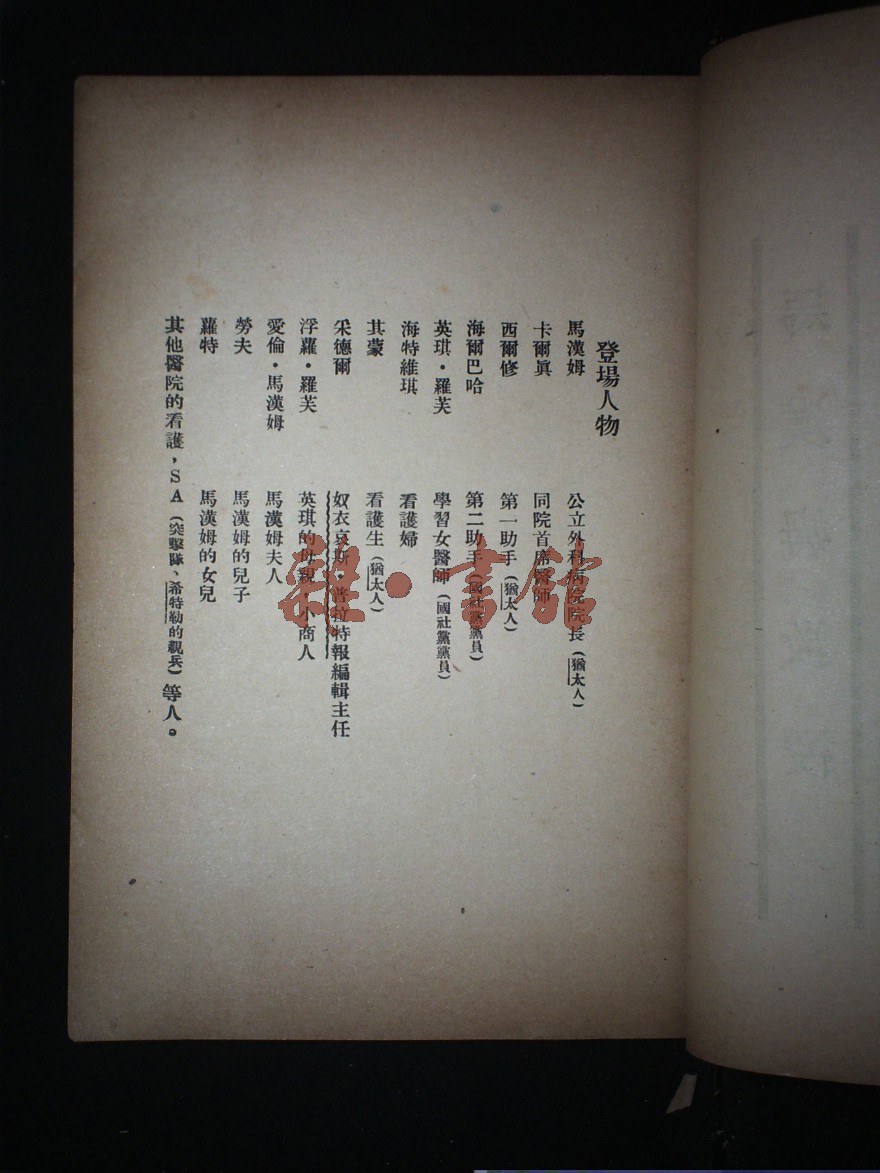 登場人物
馬漢姆 公立外科病院院長(猶太人)
卡爾眞 同院首席醫師
西爾修 第一助手(猶太人)
海爾巴哈 第二助手(國社黨黨員)
英琪・羅芙 學習女醫師(國社黨黨員)
海特維琪 看護婦
其蒙 看護生(猶太人)
采德爾 奴衣哀斯・普拉特報編輯主任
浮蘿・羅芙 英琪的母親,小商人
愛倫・馬漢姆 馬漢姆夫人
勞夫 馬漢姆的兒子
蘿特 馬漢姆的女兒
其他醫院的看護,SA(突擊隊、希特勒的親兵)等人。
雅・書館